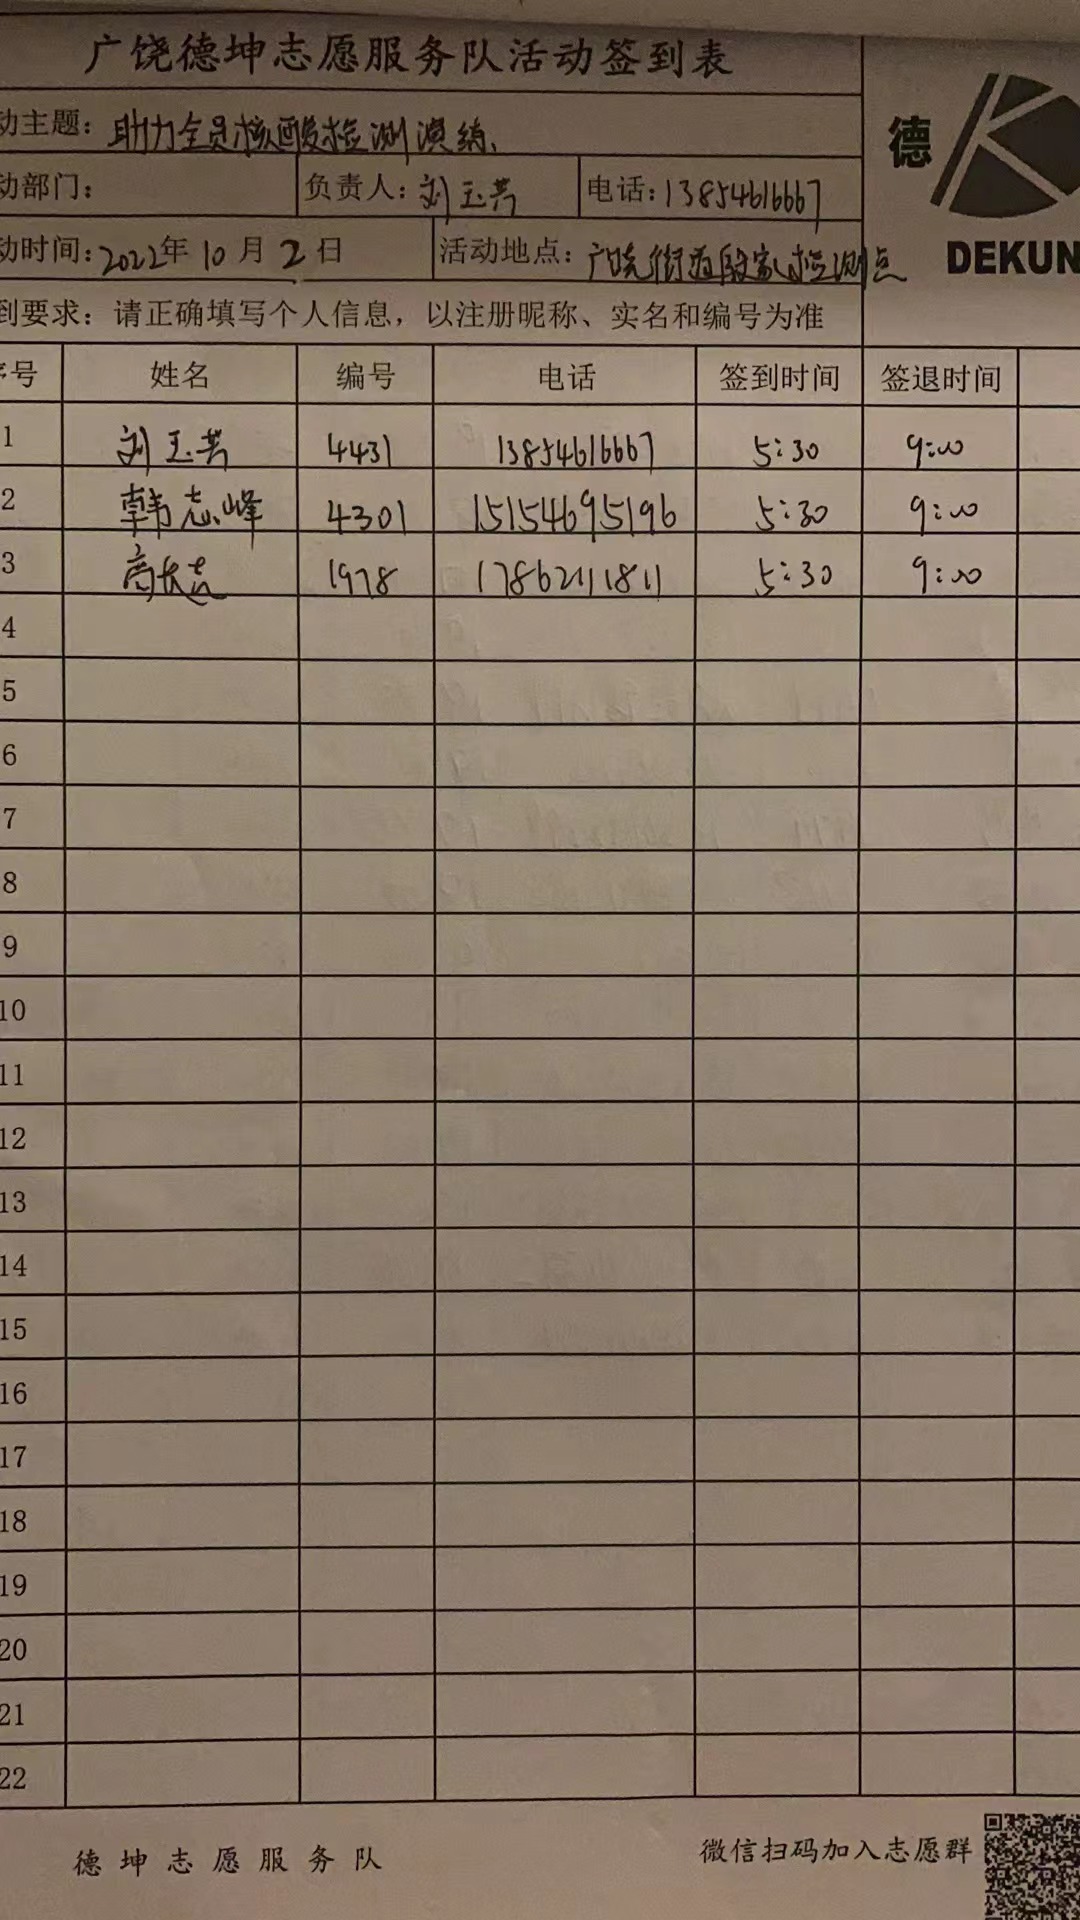 广饶德坤志愿服务队活动签到表
动主题：助力全员核酸检测演练.
动部门： 负责人：刘玉芳 电话：13854616667
动时间：2022年10月2日 活动地点：广饶街道段家检测点
到要求：请正确填写个人信息，以注册昵称、实名和编号为准
德
DEKUN
序号 姓名 编号 电话 签到时间 签退时间
1 刘玉芳 4431 13854616667 5:30 9:00
2 韩志峰 4301 15154695196 5:30 9:00
3 高大志 1978 17862111811 5:30 9:00
4
5
6
7
8
9
10
11
12
13
14
15
16
17
18
19
20
21
22
德坤志愿服务队 微信扫码加入志愿群